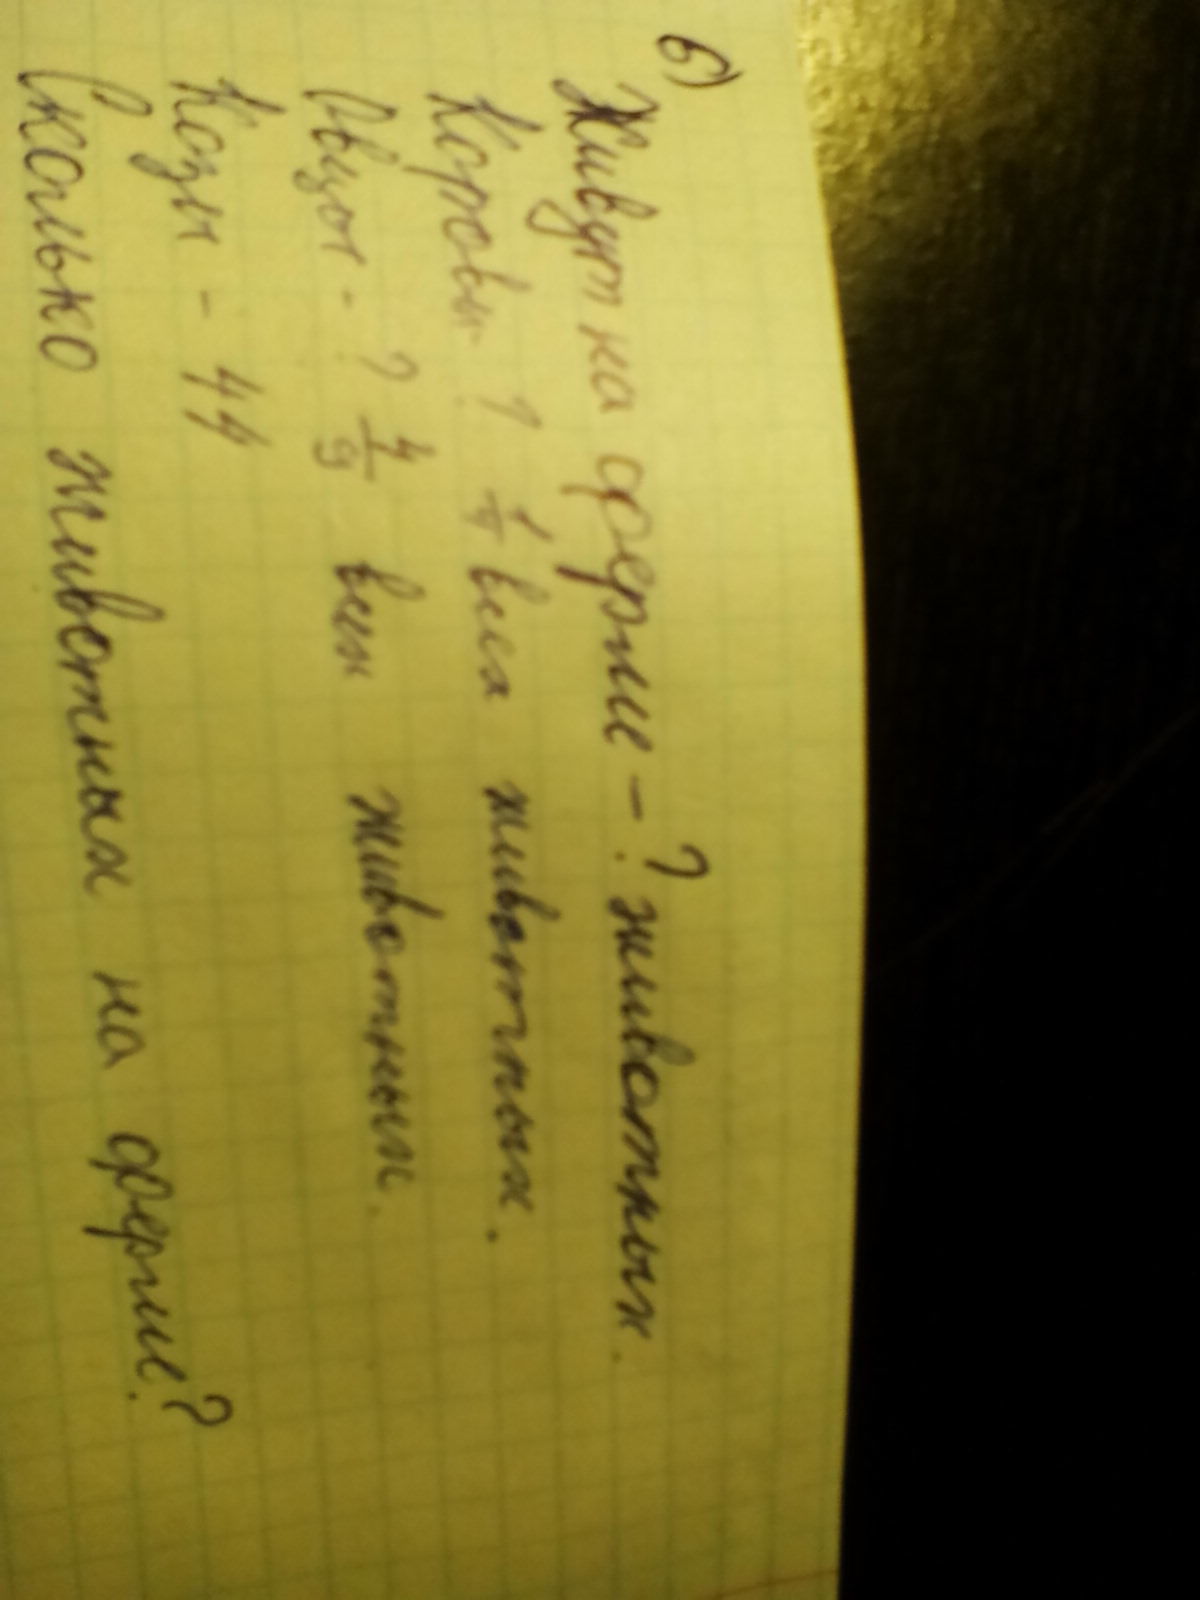 б)
Живут на ферме - ? животных.
Коровы - ? 1/4 всех животных.
Овцы - ? 4/9 всех животных.
Козы - 44
Сколько животных на ферме?